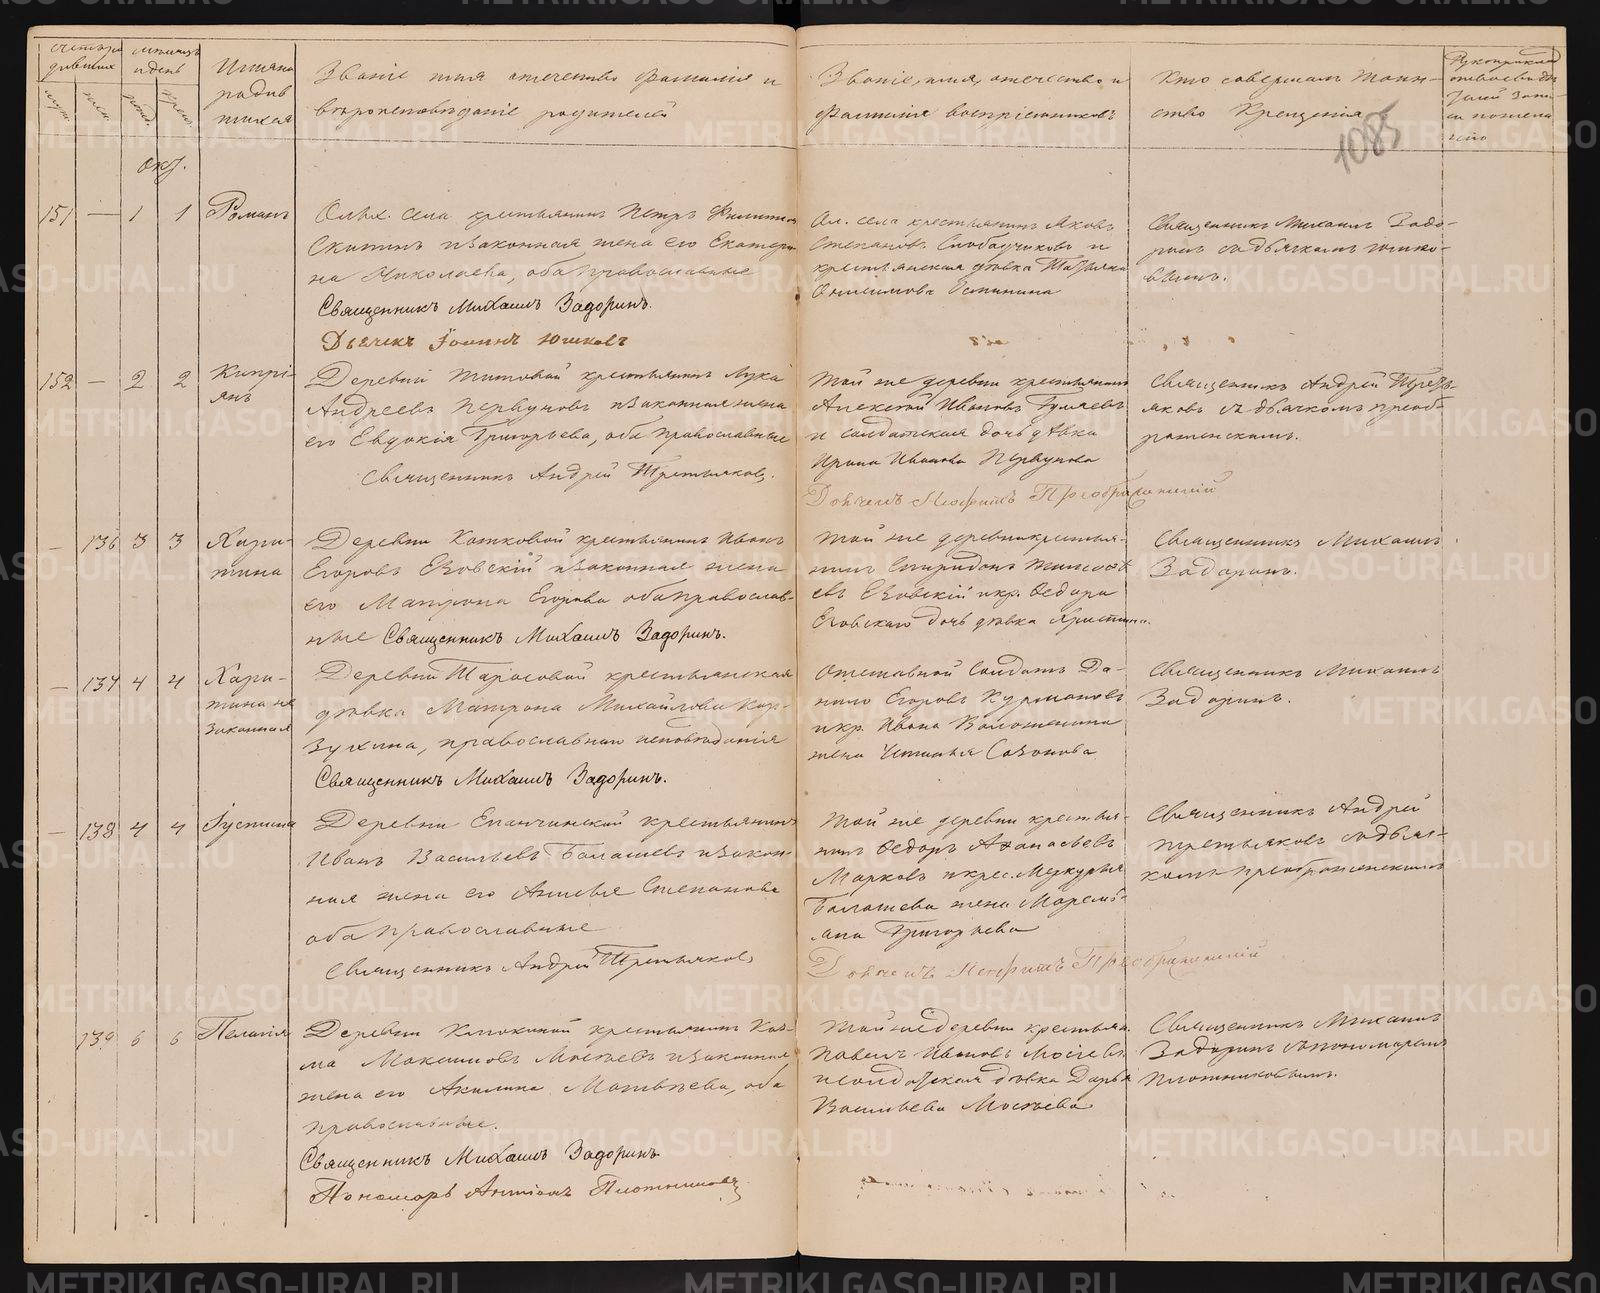 Счетъ родившихся
муж.
жен.
Мѣсяцъ и день
рожд.
крещ.
Имяна родившихся
Званіе имя отечество фамилія и
вѣроисповѣданіе родителей
Званіе, имя, отечество и
фамилія воспріемниковъ
Кто совершалъ таин-
ство Крещенія
1085
окт.
151 — 1 1 Романъ
села крестьянинъ Петръ
Скипинъ и законная жена его Екатери-
на Николаева, оба православные
Священникъ Михаилъ Задоринъ.
Дьячекъ Іоаннъ Юшковъ
села крестьянинъ Яковъ
Степановъ и
крестьянская дѣвка Татьяна
Онисимова
Священникъ Михаилъ Задо-
ринъ съ дьячкомъ Юшко-
вымъ.
152 — 2 2 Кипрі-
янъ
Деревни Титовой крестьянинъ Лука
Андреевъ Первуновъ и законная жена
его Евдокія Григорьева, оба православные
Священникъ Андрей Третьяковъ.
Той же деревни крестьянинъ
Алексѣй Ивановъ Гуляевъ
и солдатская дочь дѣвка
Ирина Иванова Первунова
Дьячекъ Неофитъ Преображенскій
Священникъ Андрей Треть-
яковъ съ дьячкомъ Преоб-
раженскимъ.
— 136 3 3 Хари-
тина
Деревни Котковой крестьянинъ Иванъ
Егоровъ Езовскій и законная жена
его Матрона Егорова оба православ-
ные Священникъ Михаилъ Задоринъ.
Той же деревни крестья-
нинъ Спиридонъ Тимофе-
евъ Езовскій и кр. Ѳедора
Езовскаго дочь дѣвка Христина.
Священникъ Михаилъ
Задоринъ.
— 137 4 4 Хари-
тина не
законная
Деревни Тарасовой крестьянская
дѣвка Матрона Михайлова Кор-
зухина, православнаго исповѣданія
Священникъ Михаилъ Задоринъ.
Отставной солдатъ Да-
нило Егоровъ Курмановъ
и кр. Ивана
жена Сазонова
Священникъ Михаилъ
Задоринъ.
— 138 4 4 Іустина
Деревни Епанчинской крестьянинъ
Иванъ Васильевъ Балашевъ и закон-
ная жена его Анисья Степанова
оба православные
Священникъ Андрей Третьяковъ
Той же деревни крестья-
нинъ Ѳедоръ Аѳанасьевъ
Марковъ и крес. Меркурья
Балашева жена Маремь-
яна Григорьева
Дьячекъ Неофитъ Преображенскій
Священникъ Андрей
Третьяковъ съ дьяч-
комъ Преображенскимъ
139 6 6 Пелагія
Деревни Клюкиной крестьянинъ Коз-
ма Максимовъ Мосѣевъ и законная
жена его Акилина Матвѣева, оба
православные.
Священникъ Михаилъ Задоринъ
Пономарь Антіохъ Плотниковъ
Той же деревни крестьян.
Павелъ Ивановъ Мосѣевъ
и солдатская дѣвка Дарья
Васильева Мосѣева
Священникъ Михаилъ
Задоринъ съ пономаремъ
Плотниковымъ.
METRIKI.GASO-URAL.RU